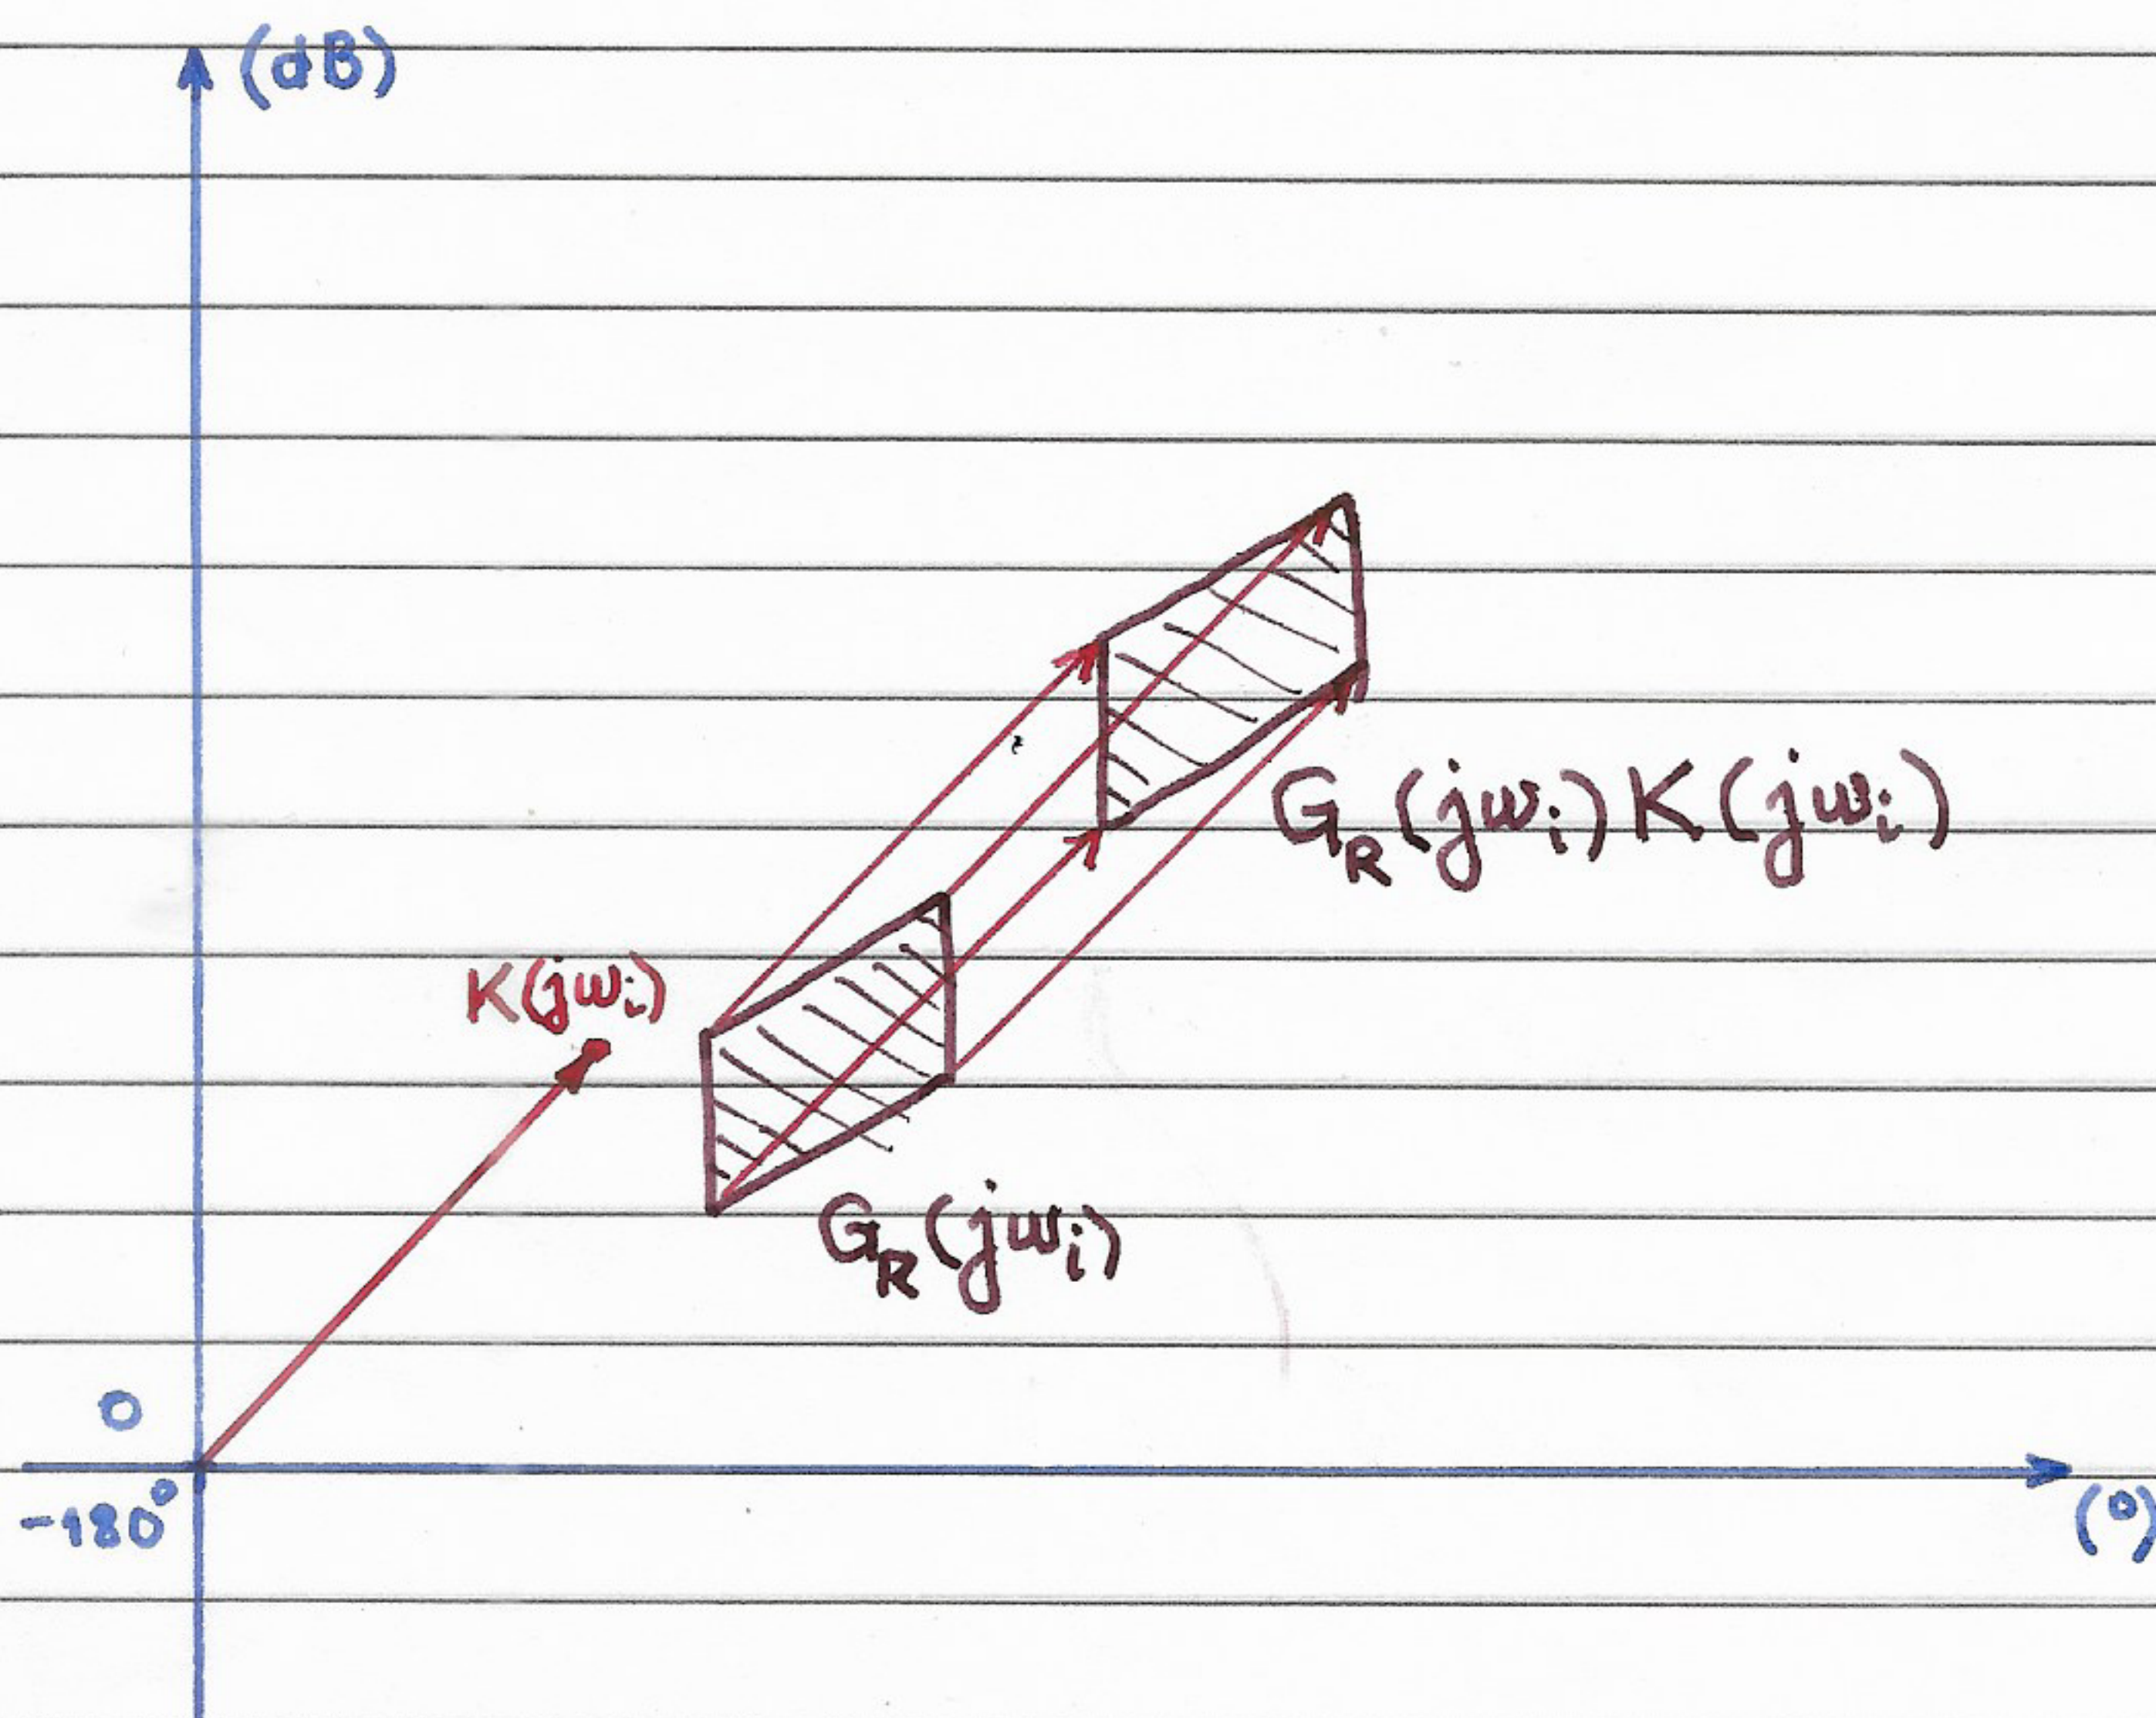 (dB)
G_R(jω_i)K(jω_i)
K(jω_i)
G_R(jω_i)
0
-180°
(°)